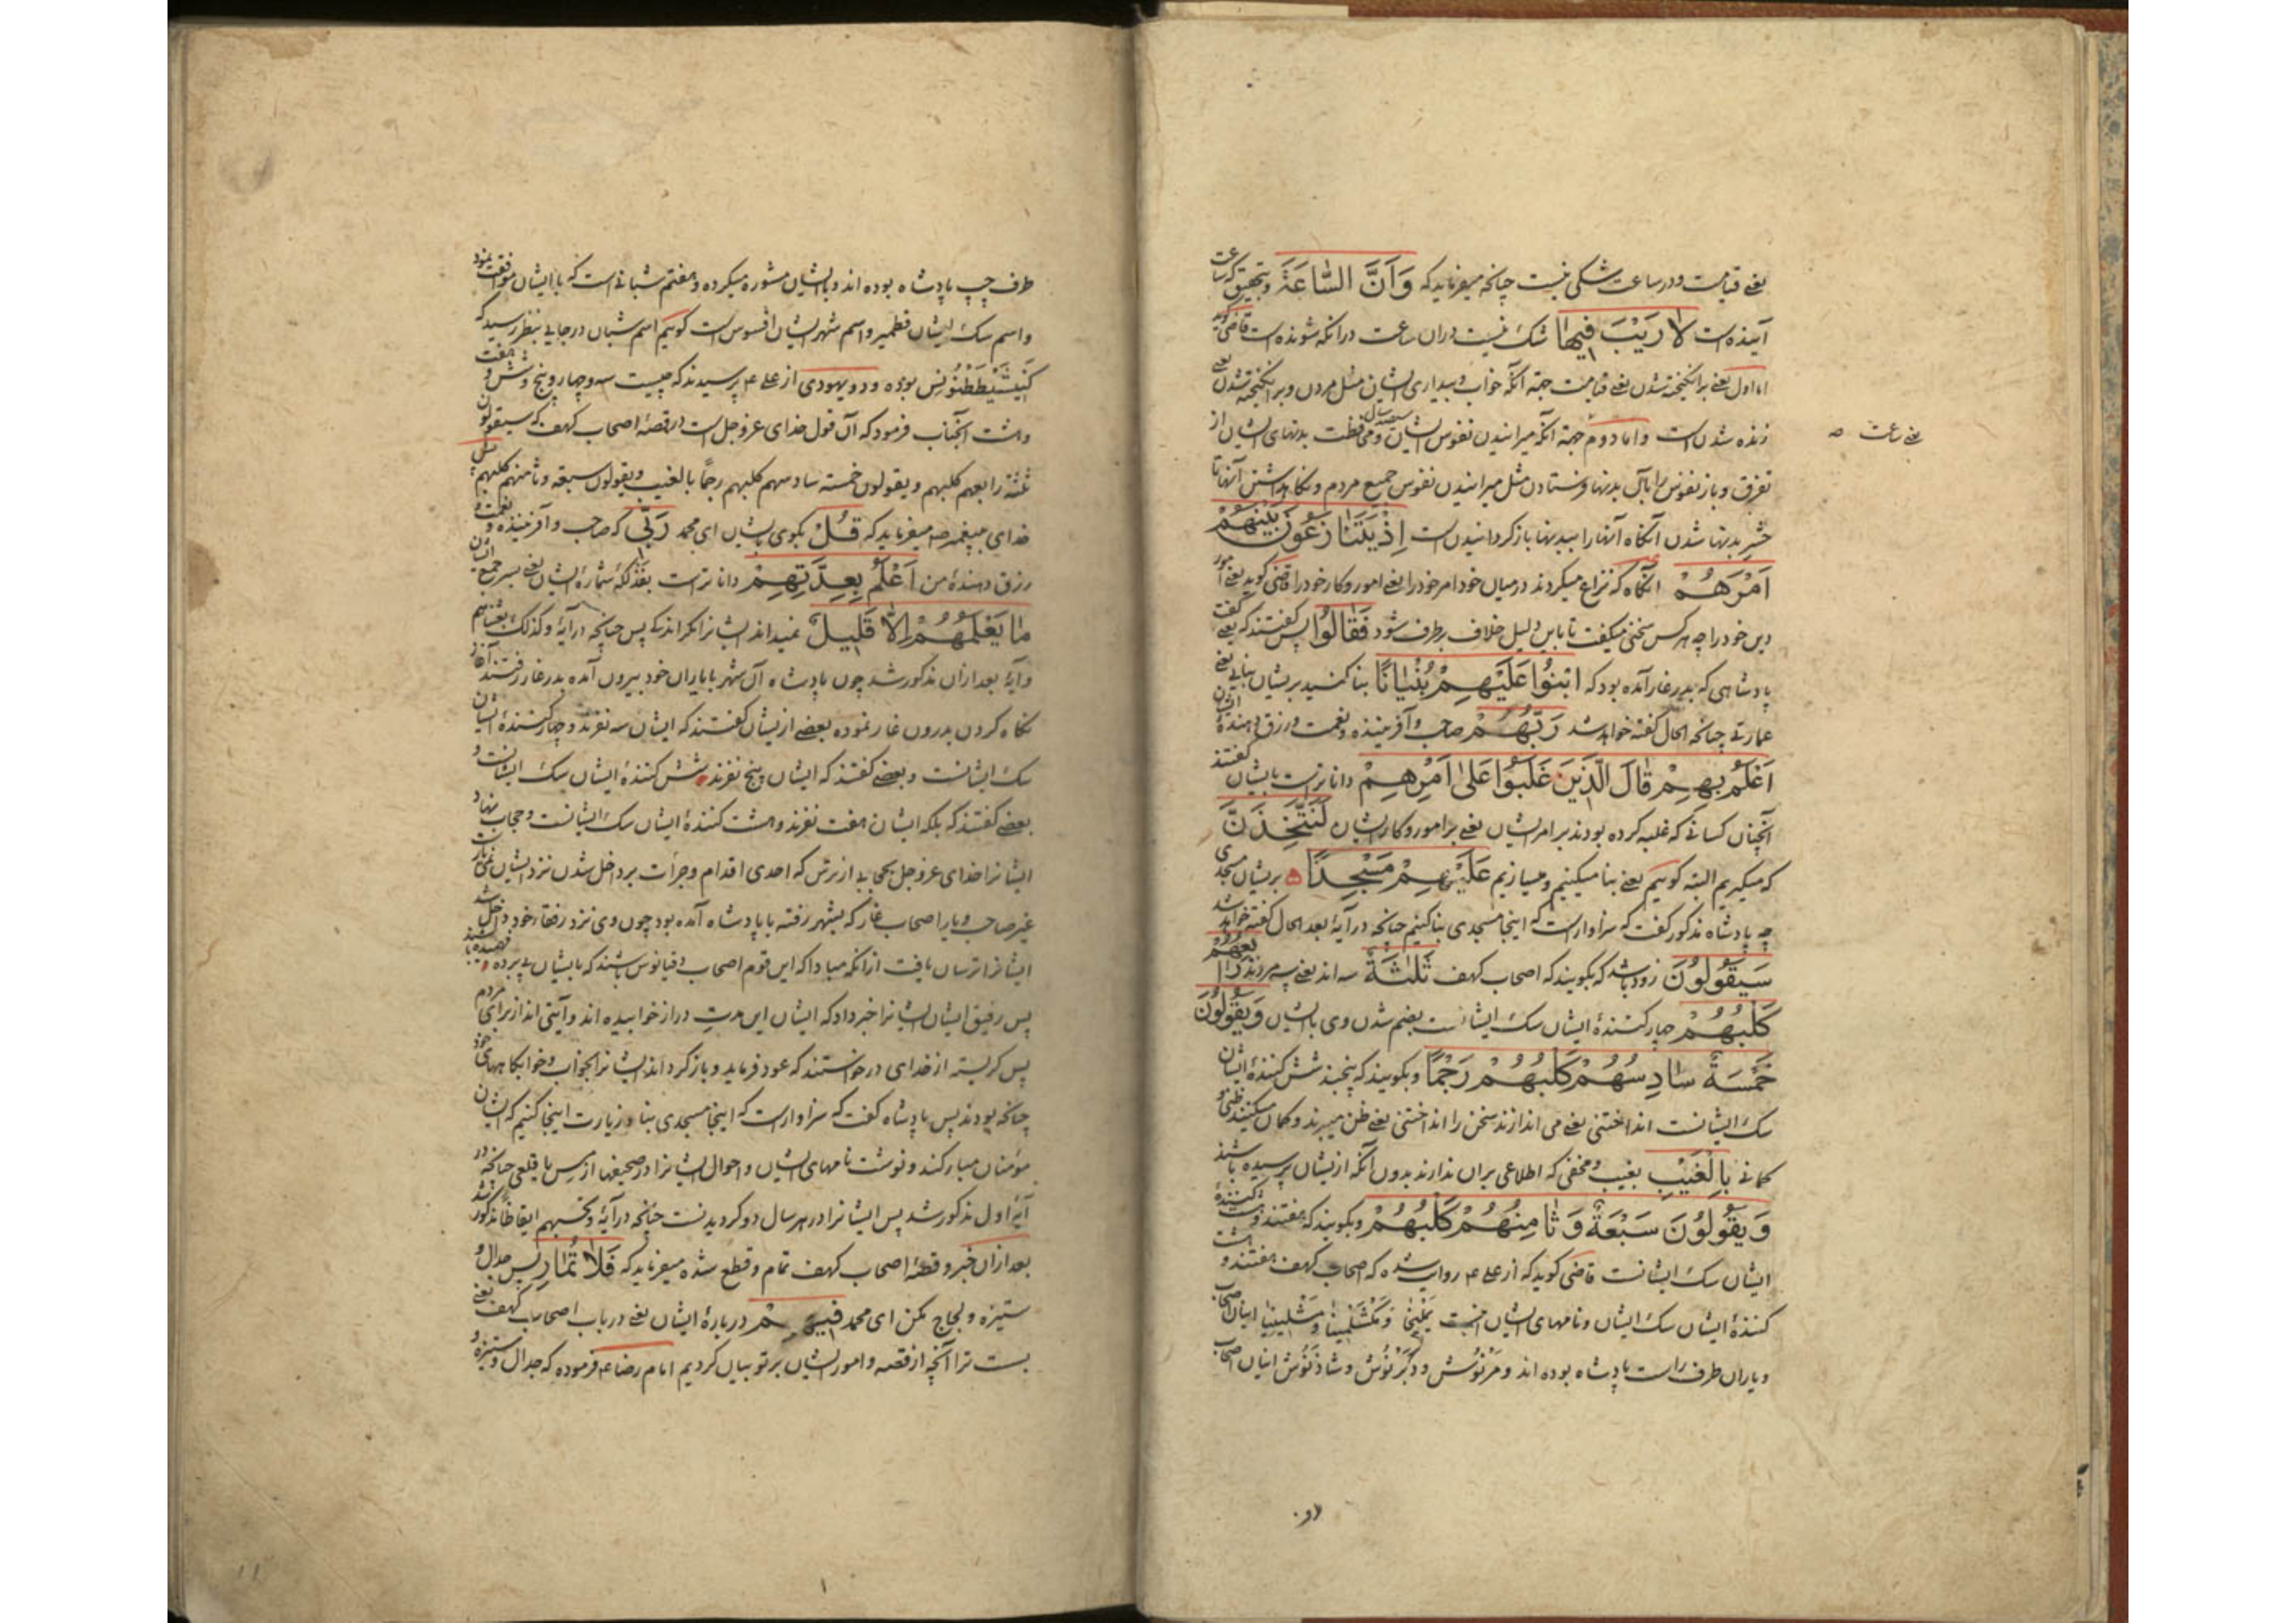 یعنی قیامت و در ساعت شکی نیست چنانچه میفرماید که وَاَنَّ السَّاعَةَ و بتحقیق که ساعت
آینده است لَا رَیْبَ فِیهَا شک نیست در آن ساعت در آنکه شونده است قاضی گوید
اما اول یعنی برانگیخته شدن یعنی قیامت جهة آنکه خواب و بیداری ایشان مثل مردن و برانگیخته شدن یعنی
زنده شدن است و اما دوم جهة آنکه میرانیدن نفوس ایشان و محافظت بدنهای ایشان از
یعنی ساعت
تفرق و باز نفوس را بآن بدنها فرستادن مثل میرانیدن نفوس جمیع مردم و نگاه داشتن آنها تا
حشر بدنها شدن آنگاه آنها را ببدنها باز گردانیدن است اِذْ یَتَنَازَعُونَ بَیْنَهُمْ
اَمْرَهُمْ آنگاه که نزاع میکردند در میان خود امر خود را یعنی امور و کار خود را قاضی گوید یعنی امور
دین خود را چه هر کس سخنی میگفت تا باین دلیل خلاف برطرف شود فَقَالُوا پس گفتند که یعنی گفت
پادشاهی که بدر غار آمده بود که ابْنُوا عَلَیْهِمْ بُنْیَانًا بنا کنید بریشان بنایی یعنی
عمارتی چنانچه الحال گفته خواهد شد رَبُّهُمْ صاحب و آفریننده و نعمت و رزق دهندهٔ ایشان
اَعْلَمُ بِهِمْ قَالَ الَّذِینَ غَلَبُوا عَلَىٰ اَمْرِهِمْ داناترست بایشان گفتند
آنچنان کسانی که غلبه کرده بودند بر امر ایشان یعنی بر امور و کار ایشان لَنَتَّخِذَنَّ
که میگیریم البته گوییم یعنی بنا میکنیم و میسازیم عَلَیْهِمْ مَسْجِدًا بریشان مسجدی
چه پادشاه مذکور گفت که سزاوار است که اینجا مسجدی بنا کنیم چنانچه در آیهٔ بعد الحال گفته خواهد شد
سَیَقُولُونَ زود باشد که بگویند که اصحاب کهف ثَلٰثَةٌ سه اند یعنی سه مردند رَابِعُهُمْ
كَلْبُهُمْ چهار کنندهٔ ایشان سک ایشانست بضم شدن وی با ایشان وَیَقُولُونَ
خَمْسَةٌ سَادِسُهُمْ كَلْبُهُمْ رَجْمًا و بگویند که پنجند شش کنندهٔ ایشان
سک ایشانست انداختنی یعنی می اندازند سخن را انداختنی یعنی ظن میبرند و کمان میکنند ظنی و
کمانی بِالْغَیْبِ بغیب و مخفی که اطلاعی بران ندارند بدون آنکه ازیشان پرسیده باشند
وَیَقُولُونَ سَبْعَةٌ وَثَامِنُهُمْ كَلْبُهُمْ و بگویند که هفتند و هشت کنندهٔ
ایشان سک ایشانست قاضی گوید که از علی ع روایت شده که اصحاب کهف هفتند و هشت
کنندهٔ ایشان سک ایشان و نامهای ایشان اینست یَمْلِیخَا وَ مَکْشَلِمِینَا وَ مَشْلِینِیَا اینان اصحاب
و یاران طرف راست پادشاه بوده اند و مَرْنُوُش و دَبَرْنُوُش و شاذَنُوُش اینان اصحاب
طرف چپ پادشاه بوده اند و با ایشان مشوره میکرده و هفتم شبانی است که با ایشان موافقت نمود
و اسم سک ایشان قطمیر و اسم شهر ایشان افسوس است گوییم اسم شبان در جایی بنظر رسید که
بوده و دو یهودی از علی ع پرسیدند که چیست سه و چهار و پنج و شش و هفت
و هشت آنجناب فرمود که آن قول خدای عز و جل است در قصهٔ اصحاب کهف که سیقولون
ثلثة رابعهم کلبهم و یقولون خمسة سادسهم کلبهم رجماً بالغیب و یقولون سبعة و ثامنهم کلبهم پس
خدای بپیغمر ص میفرماید که قُلْ بگوی بایشان ای محمد رَبِّی که صاحب و آفریننده و نعمت و
رزق دهندهٔ من اَعْلَمُ بِعِدَّتِهِمْ داناترست بفذلکهٔ شمارهٔ ایشان یعنی بسر جمیع ایشان
مَا یَعْلَمُهُمْ اِلَّا قَلِیلٌ نمیداند ایشانرا مگر اندکی پس چنانچه در آیهٔ و کذلک بعثناهم
و آیهٔ بعد ازان مذکور شد چون پادشاه آن شهر با یاران خود بیرون آمده بدر غار رفتند آغاز
نگاه کردن بدرون غار نموده بعضی ازیشان گفتند که ایشان سه نفرند و چهار کنندهٔ ایشان
سک ایشانست و بعضی گفتند که ایشان پنج نفرند شش کنندهٔ ایشان سک ایشانست و
بعضی گفتند که بلکه ایشان هفت نفرند و هشت کنندهٔ ایشان سک ایشانست و حجاب نهاد
ایشانرا خدای عز و جل بحجابی از ترس که احدی اقدام و جرأت بر داخل شدن نزد ایشان نمی یارست
غیر صاحب و یار اصحاب غار که بشهر رفته با پادشاه آمده بود چون وی نزد رفقاء خود داخل شد
ایشانرا ترسان یافت ازانکه مبادا که این قوم اصحاب دقیانوس باشند که بایشان پی برده و فهمیده باشند
پس رفیق ایشان ایشانرا خبر داد که ایشان این مدت دراز خوابیده اند و آیتی اند از برای مردم
پس گریسته از خدای درخواستند که عود فرماید و باز گرداند ایشانرا بخواب و خوابگاههای خود
چنانچه بودند پس پادشاه گفت که سزاوار است که اینجا مسجدی بنا و زیارت اینجا کنیم که ایشان
مؤمنان مبارکند و نوشت نامهای ایشان و احوال ایشانرا در صحیفها از مس یا قلعی چنانچه در
آیهٔ اول مذکور شد پس ایشانرا در هر سال دو گردیدنست چنانچه در آیهٔ و تحسبهم ایقاظاً مذکور شد
بعد ازان خبر و قصهٔ اصحاب کهف تمام و قطع شده میفرماید که فَلَا تُمَارِ پس جدال و
ستیزه و لجاج مکن ای محمد فِیهِمْ دربارهٔ ایشان یعنی در باب اصحاب کهف یعنی
بست ترا آنچه از قصه و امور ایشان بر تو بیان کردیم امام رضا ع فرموده که جدال و ستیزه و